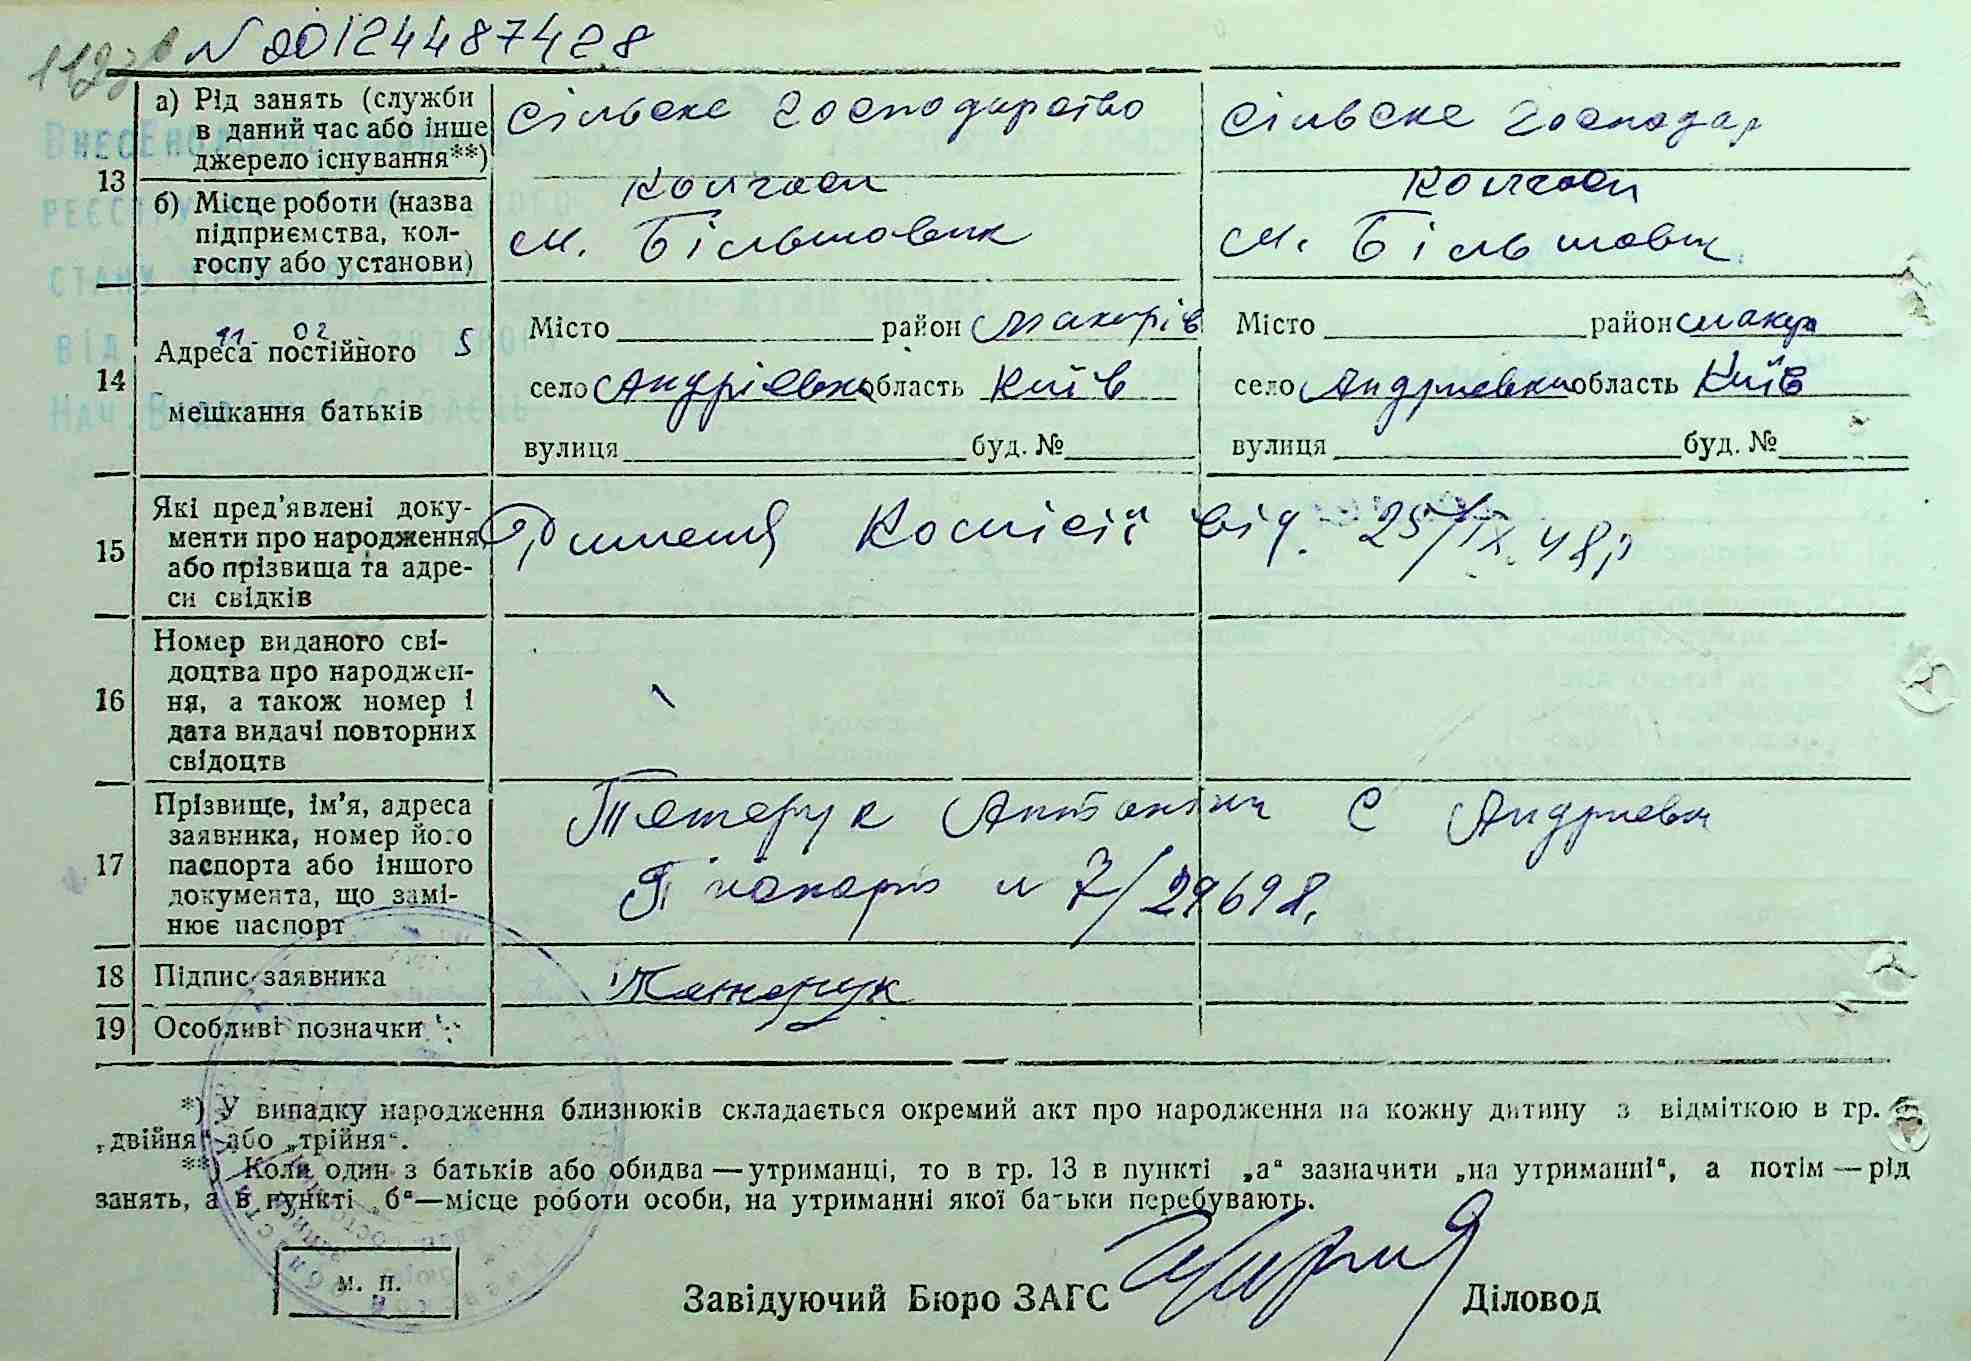 N 00124487428
а) Рід занять (служби в даний час або інше джерело існування**)
сільске господарство
сільске господар
13
б) Місце роботи (назва підприємства, колгоспу або установи)
Колгосп
м. Більшовик
Колгосп
м. Більшовик
14
Адреса постійного мешкання батьків
11. 02 5
Місто район Макарів
село Андріївка область Київ
вулиця буд. №
Місто район Макар
село Андриевка область Київ
вулиця буд. №
15
Які пред'явлені доку-
менти про народження
або прізвища та адре-
си свідків
Рішення Комісії від 25/IX. 48р
16
Номер виданого сві-
доцтва про народжен-
ня, а також номер і
дата видачі повторних
свідоцтв
17
Прізвище, ім'я, адреса
заявника, номер його
паспорта або іншого
документа, що замі-
нює паспорт
Тетерук Антонін С Андриевк
7/29698.
18 Підпис заявника
19 Особливі позначки
*) У випадку народження близнюків складається окремий акт про народження на кожну дитину з відміткою в гр.
„двійня“ або „трійня“.
**) Коли один з батьків або обидва — утриманці, то в гр. 13 в пункті „а“ зазначити „на утриманні“, а потім — рід
занять, а в пункті „б“—місце роботи особи, на утриманні якої батьки перебувають.
м. п.
Завідуючий Бюро ЗАГС Діловод